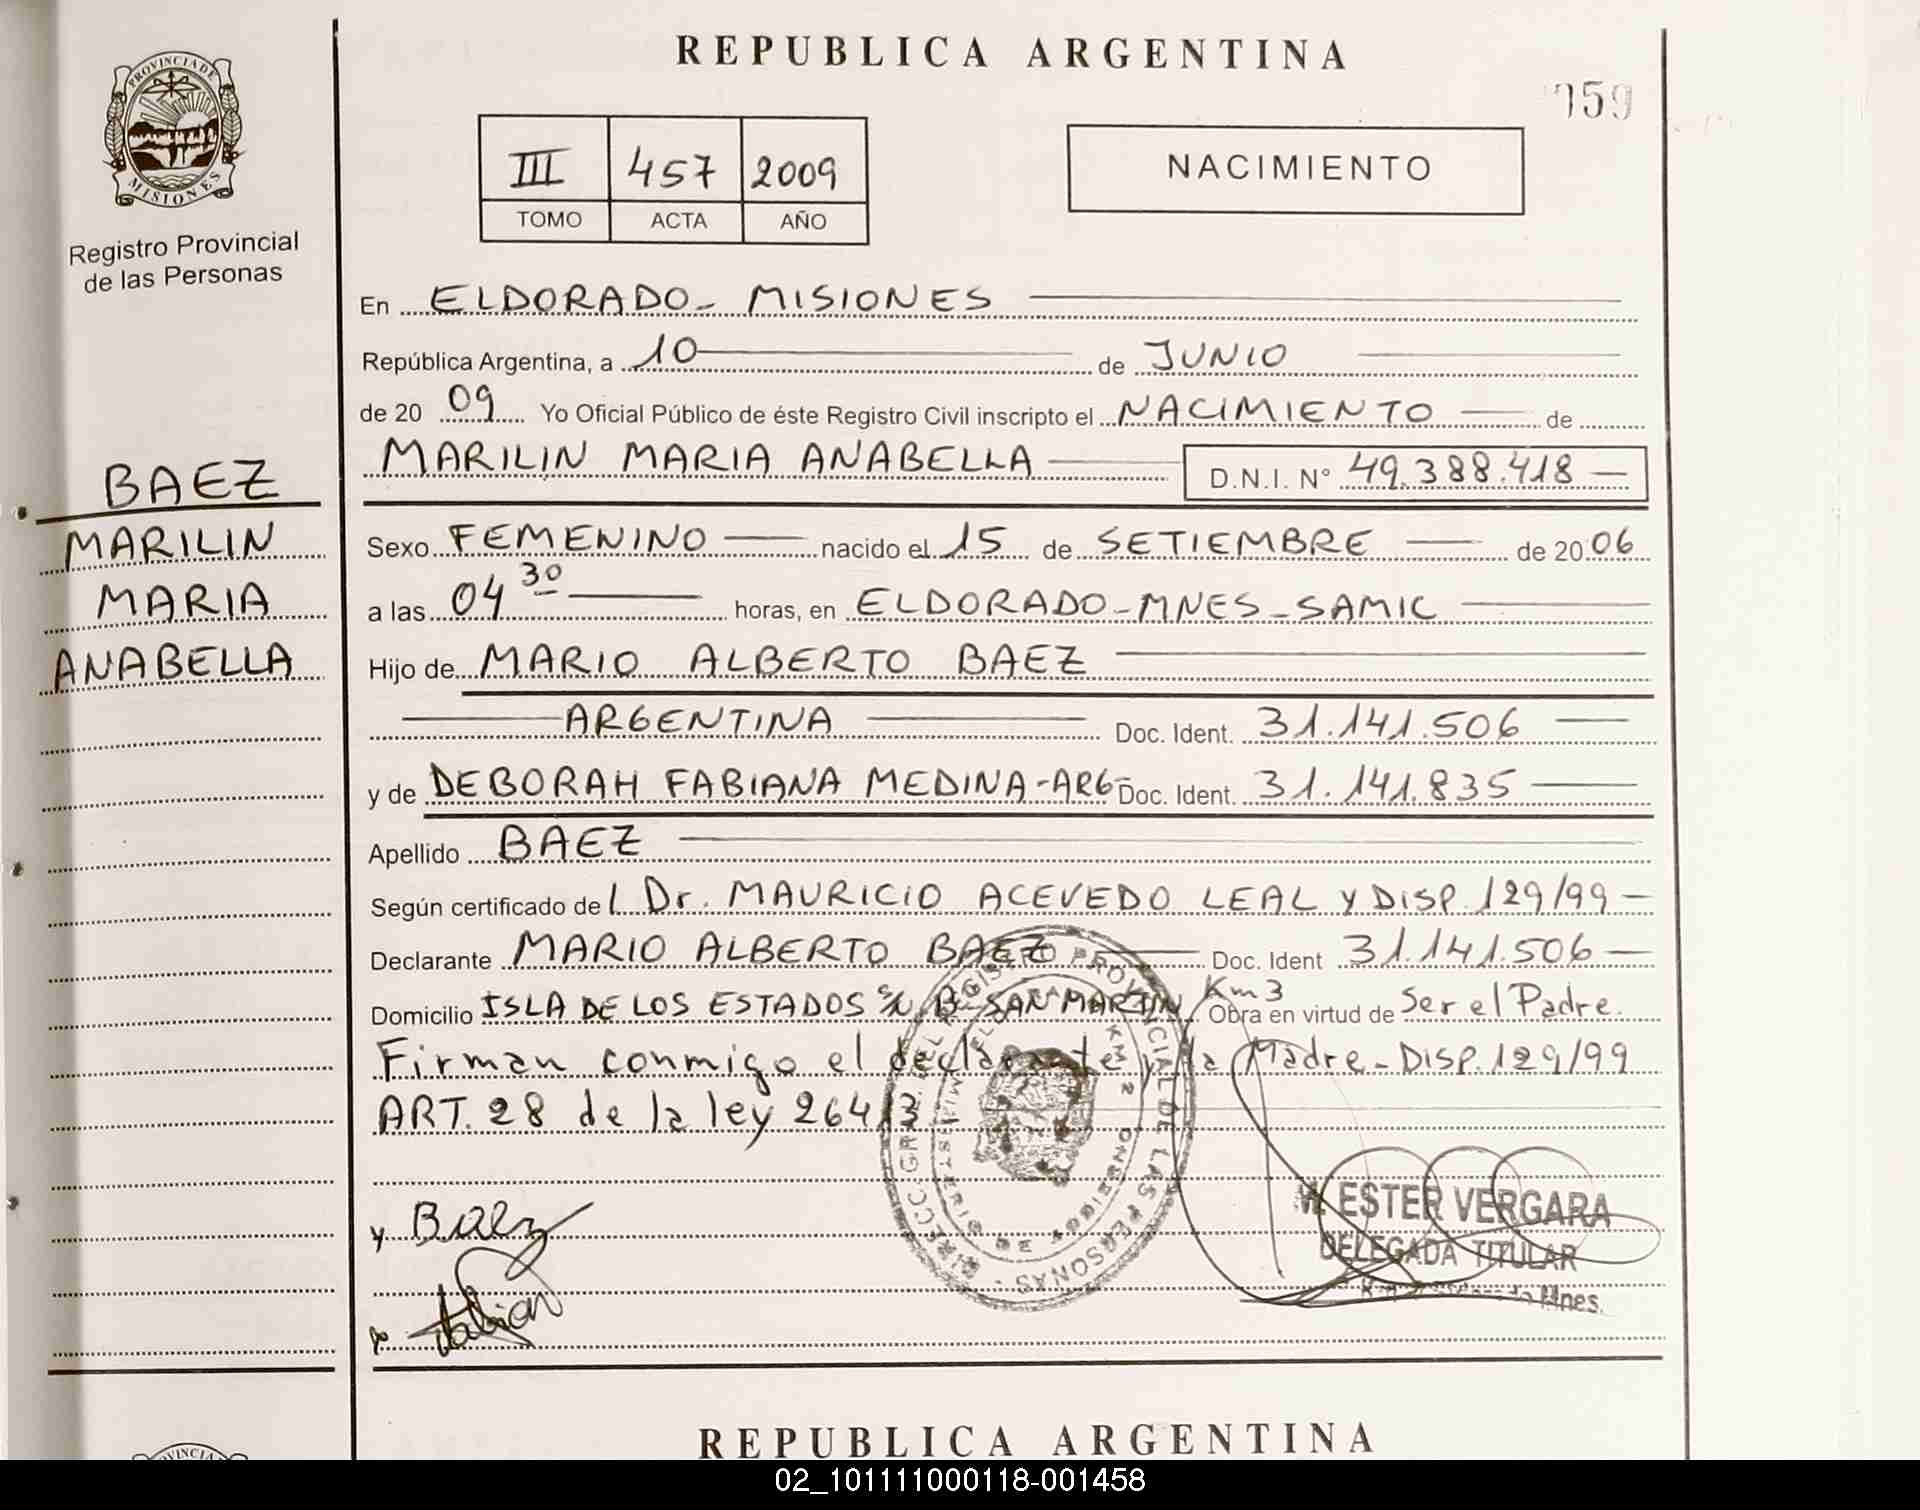 REPUBLICA ARGENTINA
059
PROVINCIA DE
MISIONES
Registro Provincial
de las Personas
III 457 2009
TOMO ACTA AÑO
NACIMIENTO
En ELDORADO - MISIONES
República Argentina, a 10 de JUNIO
de 20 09 Yo Oficial Público de éste Registro Civil inscripto el NACIMIENTO de
MARILIN MARIA ANABELLA D.N.I. N° 49.388.418
BAEZ
MARILIN
MARIA
ANABELLA
Sexo FEMENINO nacido el 15 de SETIEMBRE de 20 06
a las 04 30 horas, en ELDORADO - MNES - SAMIC
Hijo de MARIO ALBERTO BAEZ
ARGENTINA Doc. Ident. 31.141.506
y de DEBORAH FABIANA MEDINA - ARG- Doc. Ident. 31.141.835
Apellido BAEZ
Según certificado de l Dr. MAURICIO ACEVEDO LEAL y DISP. 129/99
Declarante MARIO ALBERTO BAEZ Doc. Ident 31.141.506
Domicilio ISLA DE LOS ESTADOS S/N B° SAN MARTIN Km 3 Obra en virtud de Ser el Padre.
Firman conmigo el declarante y la Madre - DISP. 129/99
ART. 28 de la ley 26413
y Baez
Fabian
M. ESTER VERGARA
DELEGADA TITULAR
Mnes.
REGISTRO PROVINCIAL DE LAS PERSONAS
MINISTERIO DE GOBIERNO
KM 2
REPUBLICA ARGENTINA
02_101111000118-001458